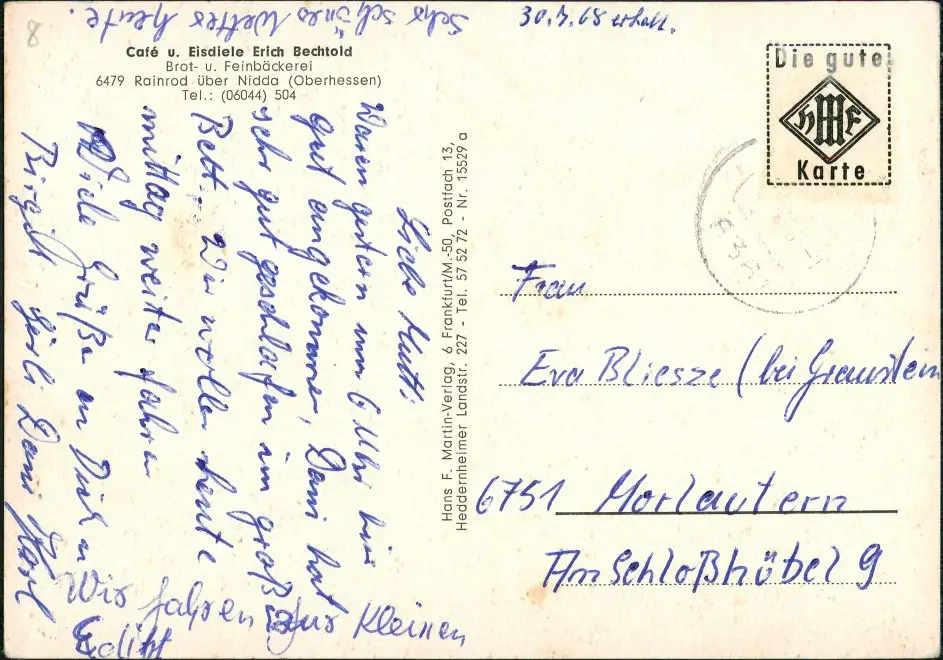 Sehr schönes Wetter heute.
30.7.68 erhalt.
8
Café u. Eisdiele Erich Bechtold
Brot- u. Feinbäckerei
6479 Rainrod über Nidda (Oberhessen)
Tel.: (06044) 504
Liebe Mutti
Waren gestern um 6 Uhr hier
gut angekommen, Dani hat
sehr gut geschlafen im groß
Bett. Wir wollen heute
mittag weiter fahren
Viele Grüße an Dich u
Birgit Dani Karl
Wir fahren zur Kleinen
Edith
Hans F. Martin-Verlag, 6 Frankfurt/M.-50, Postfach 13,
Heddernheimer Landstr. 227 - Tel. 57 52 72 - Nr. 15529 a
Die gute
HMF
Karte
Frau
Eva Bliesze (bei Graustein
6751 Morlautern
Am Schloßhübel 9